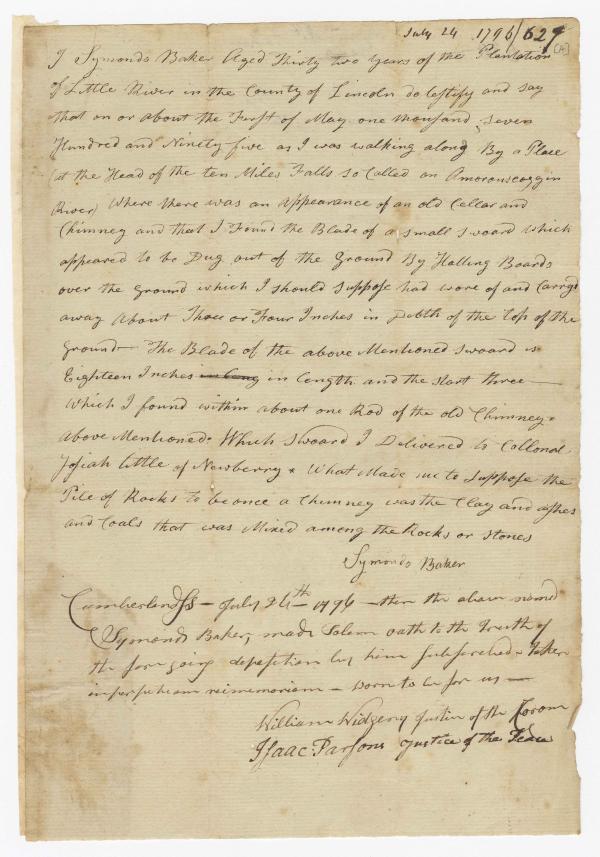 July 24 1796/629
[A]
I Symonds Baker Aged Thirty two years of the Plantation
of Little River in the County of Lincoln do testify and say
that on or about the First of May one thousand Seven
Hundred and Ninety five as I was walking along By a Place
(at the Head of the ten Miles Falls so Called on Amorouscoggin
River) Where there was an Appearance of an old Cellar and
Chimney and that I Found the Blade of a small Swoard which
appeared to be Dug out of the Ground By Halling Boards
over the Ground which I should Suppose had wore of and Carryd
away About Three or Four Inches in Debth of the top of the
Ground The Blade of the above Mentioned Swoard is
Eighteen Inches in leng in length and the start three
Which I found within about one Rod of the old Chimney
above Mentioned. Which Swoard I Delivered to Collonal
Josiah Little of Newberry & What Made me to Suppose the
Pile of Rocks to be once a Chimney was the Clay and ashes
and Coals that was Mixed among the Rocks or stones
Symonds Baker
Cumberland Ss - July 24th - 1796 - then the above named
Symonds Baker, made Solem oath to the Truth of
the foregoing deposition by him Subscribed Taken
in perpetuam reimemoriam - sworn to before us
William Widgery Justice of the Corom
Isaac Parsons Justice of the Peace